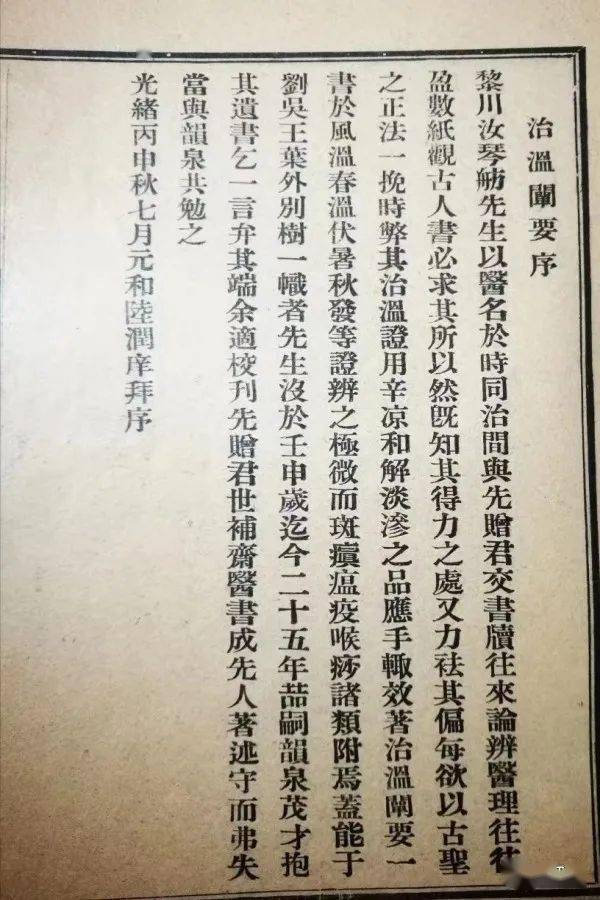 治溫闡要序
黎川汝琴舫先生以醫名於時同治間與先贈君交書牘往來論辨醫理往往
盈數紙觀古人書必求其所以然旣知其得力之處又力袪其偏每欲以古聖
之正法一挽時弊其治溫證用辛凉和解淡滲之品應手輙效著治溫闡要一
書於風溫春溫伏暑秋發等證辨之極微而斑㿔瘟疫喉痧諸類附焉蓋能于
劉吳王葉外別樹一幟者先生沒於壬申歲迄今二十五年喆嗣韻泉茂才抱
其遺書乞一言弁其端余適校刊先贈君世補齋醫書成先人著述守而弗失
當與韻泉共勉之
光緒丙申秋七月元和陸潤庠拜序